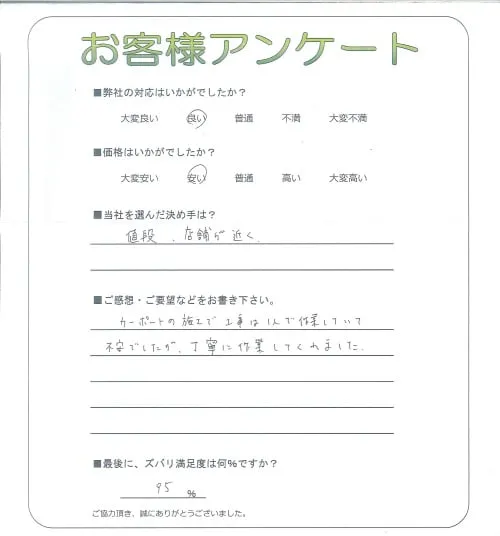 お客様アンケート
■弊社の対応はいかがでしたか?
大変良い 良い 普通 不満 大変不満
■価格はいかがでしたか?
大変安い 安い 普通 高い 大変高い
■当社を選んだ決め手は?
値段、店舗が近く、
■ご感想・ご要望などをお書き下さい。
カーポートの施工で工事は1人で作業していて
不安でしたが、丁寧に作業してくれました。
■最後に、ズバリ満足度は何%ですか?
95 %
ご協力頂き、誠にありがとうございました。